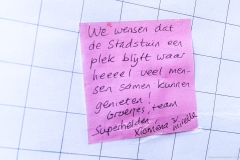 We wensen dat
de Stadstuin een
plek blijft waar
heeeel veel men-
sen samen kunnen
genieten!
Groetjes, team
Superhelden
Xiomena & Mirella